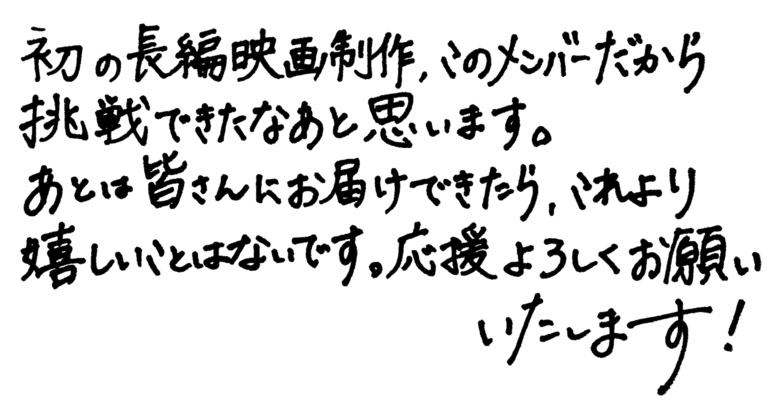 初の長編映画制作、このメンバーだから
挑戦できたなあと思います。
あとは皆さんにお届けできたら、これより
嬉しいことはないです。応援よろしくお願い
いたします!